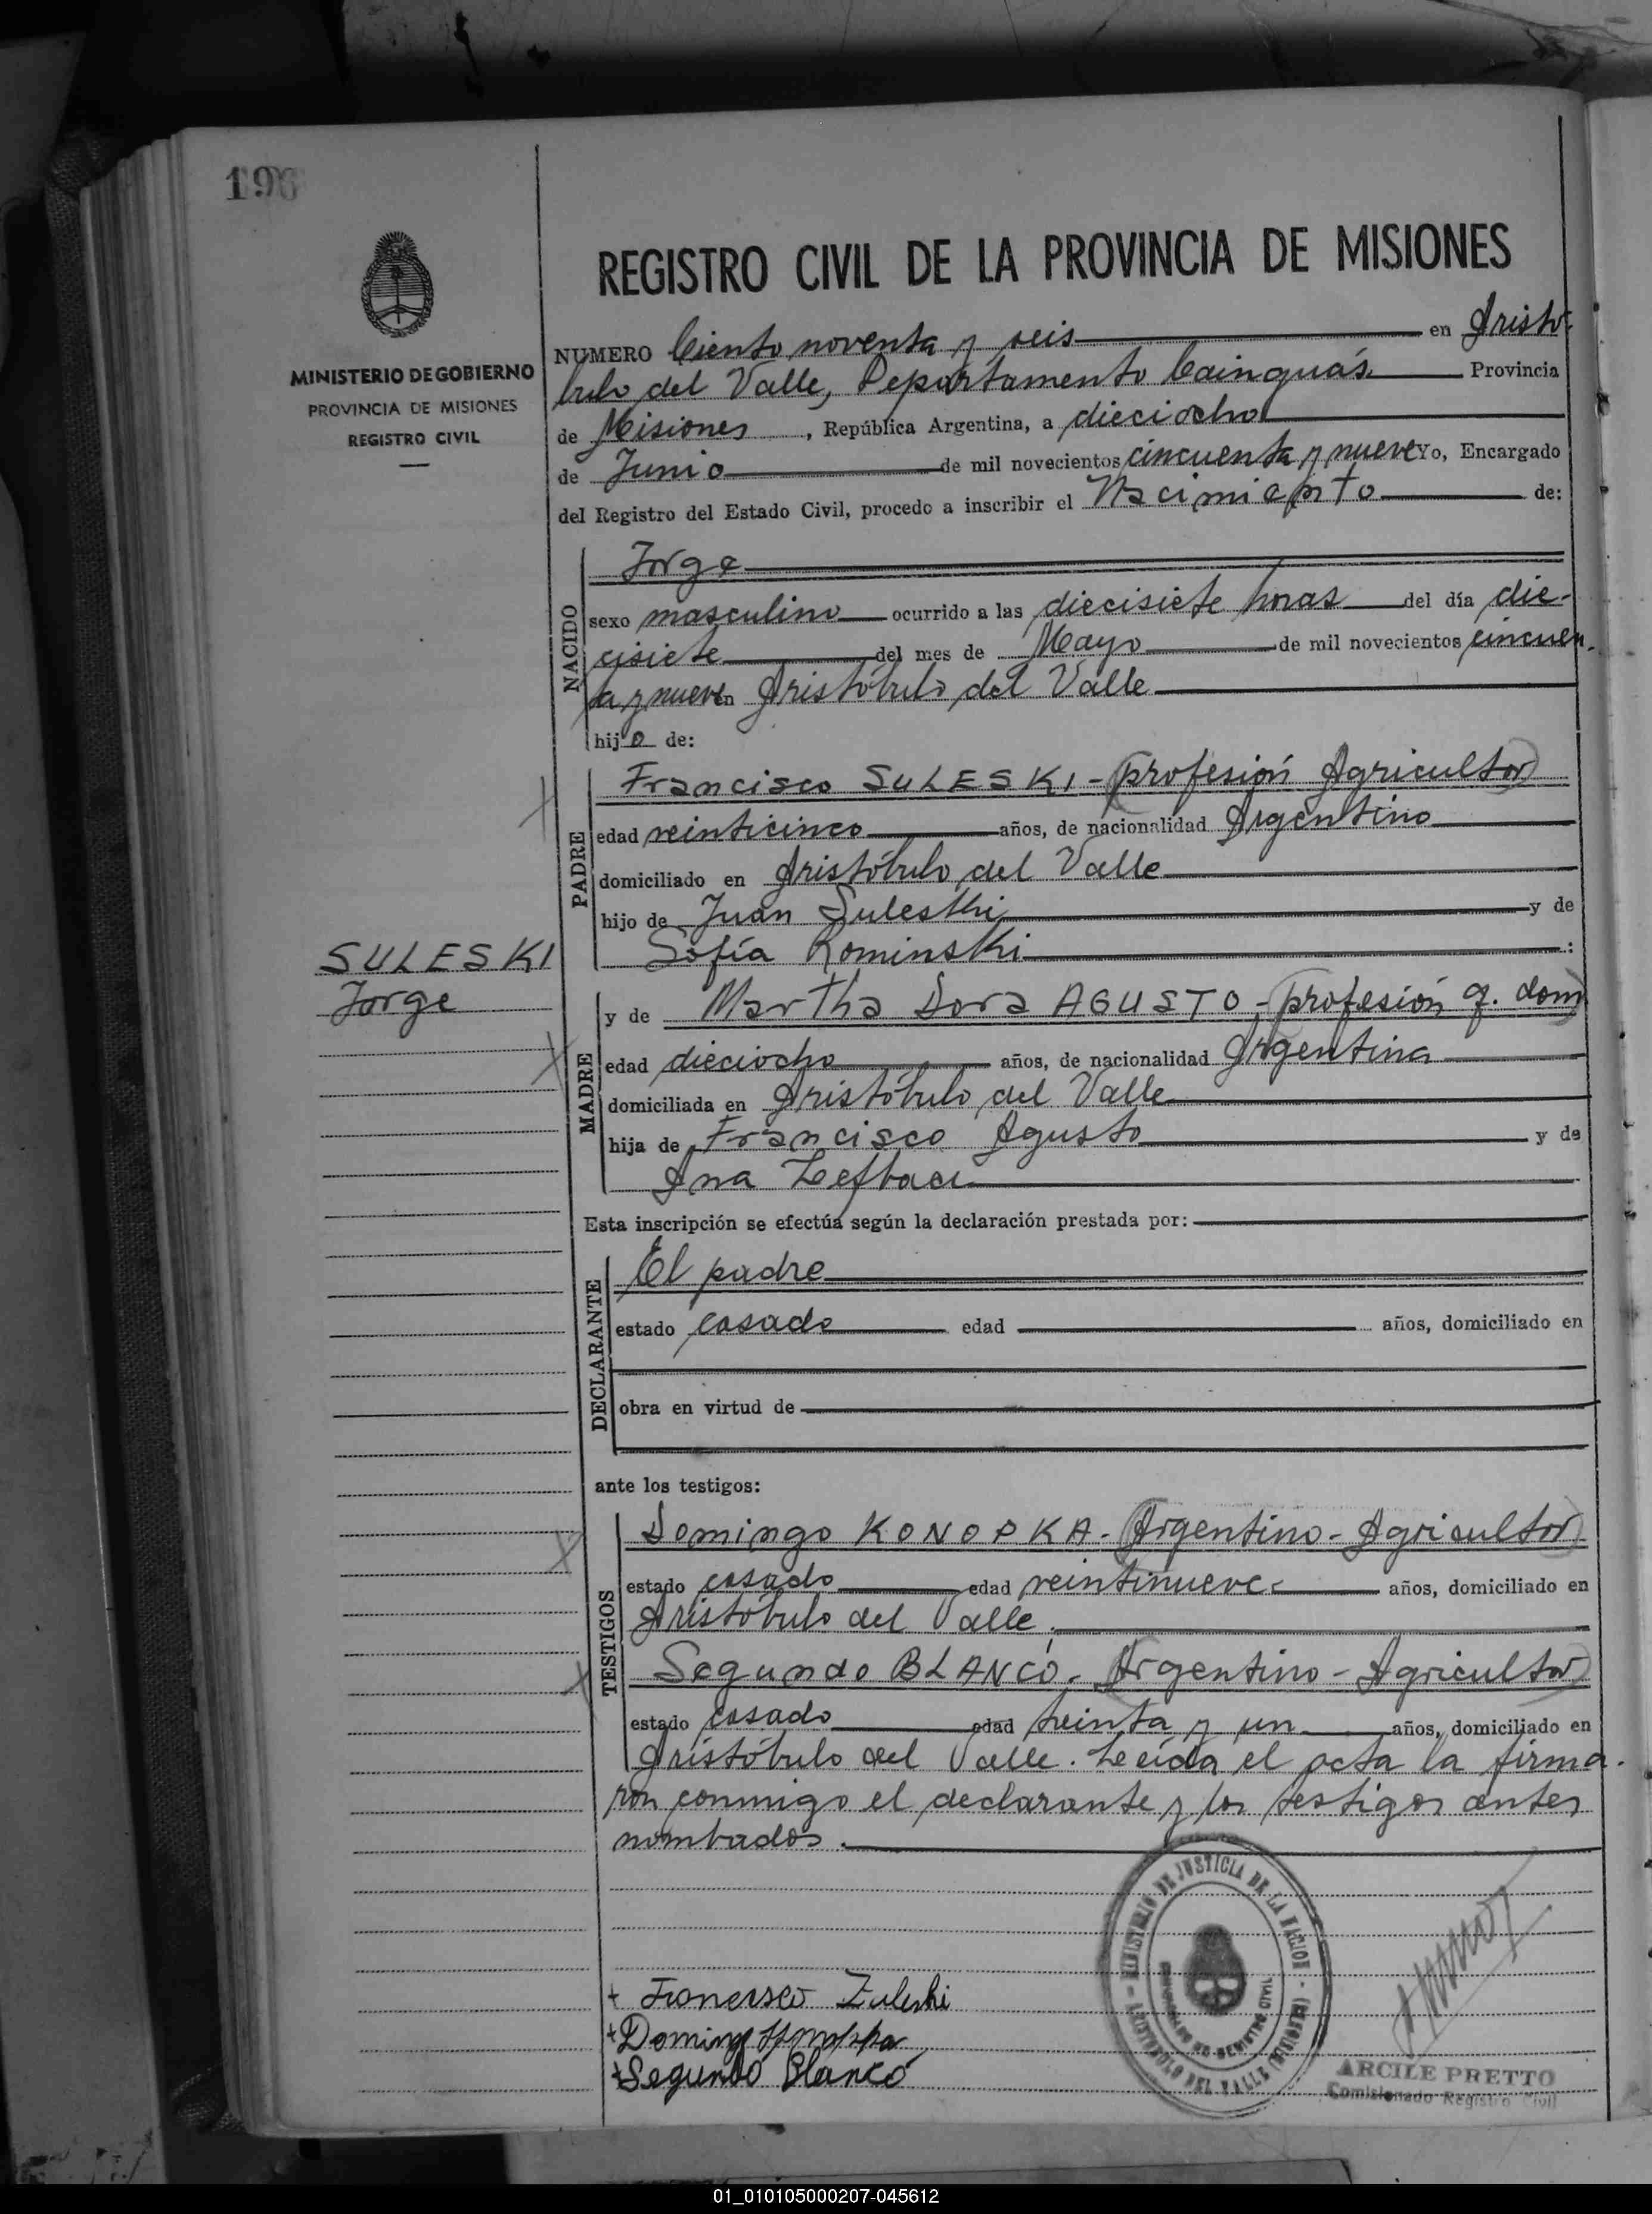 196
MINISTERIO DE GOBIERNO
PROVINCIA DE MISIONES
REGISTRO CIVIL
REGISTRO CIVIL DE LA PROVINCIA DE MISIONES
NUMERO Ciento noventa y seis en Aristó-
bulo del Valle, Departamento Cainguás Provincia
de Misiones, República Argentina, a dieciocho
de Junio de mil novecientos cincuenta y nueve Yo, Encargado
del Registro del Estado Civil, procedo a inscribir el Nacimiento de:
NACIDO
Jorge
sexo masculino ocurrido a las diecisiete horas del día die-
cisiete del mes de Mayo de mil novecientos cincuen-
ta y nueve en Aristóbulo del Valle
hijo de:
PADRE
Francisco SULESKI - (profesión Agricultor)
edad veinticinco años, de nacionalidad Argentino
domiciliado en Aristóbulo del Valle
hijo de Juan Suleski y de
Sofía Rominski :
SULESKI
Jorge
MADRE
y de Martha Dora AGUSTO - (profesión q. dom)
edad dieciocho años, de nacionalidad Argentina
domiciliada en Aristóbulo del Valle
hija de Francisco Agusto y de
Ana
Esta inscripción se efectúa según la declaración prestada por:
DECLARANTE
El padre
estado casado edad años, domiciliado en
obra en virtud de
ante los testigos:
TESTIGOS
Domingo KONOPKA - (Argentino - Agricultor)
estado casado edad veintinueve años, domiciliado en
Aristóbulo del Valle.
Segundo BLANCO. (Argentino - Agricultor)
estado casado edad treinta y un años, domiciliado en
Aristóbulo del Valle. Leída el acta la firma-
ron conmigo el declarante y los testigos antes
nombrados.
+ Francisco Zuleski
+ Domingo Konopka
+ Segundo Blanco
MINISTERIO DE JUSTICIA DE LA NACION - ARISTOBULO DEL VALLE (MISIONES)
ARCILE PRETTO
Comisionado Registro Civil
01_010105000207-045612